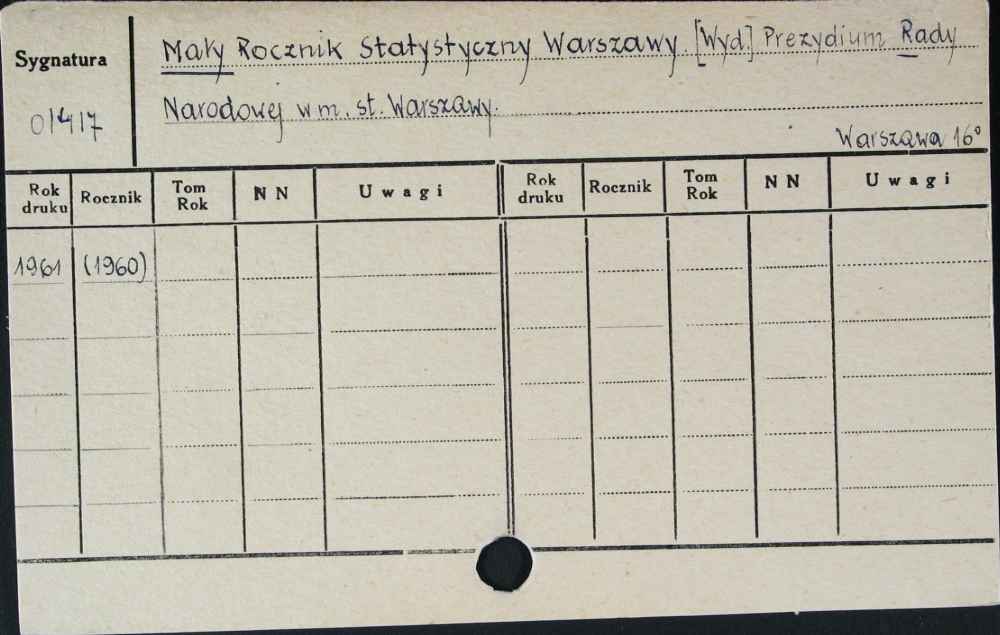 Sygnatura
Mały Rocznik Statystyczny Warszawy. [Wyd.] Prezydium Rady
Narodowej w m. st. Warszawy.
0/417
Warszawa 16°
Rok druku Rocznik Tom Rok N N Uwagi Rok druku Rocznik Tom Rok N N Uwagi
1961 (1960)